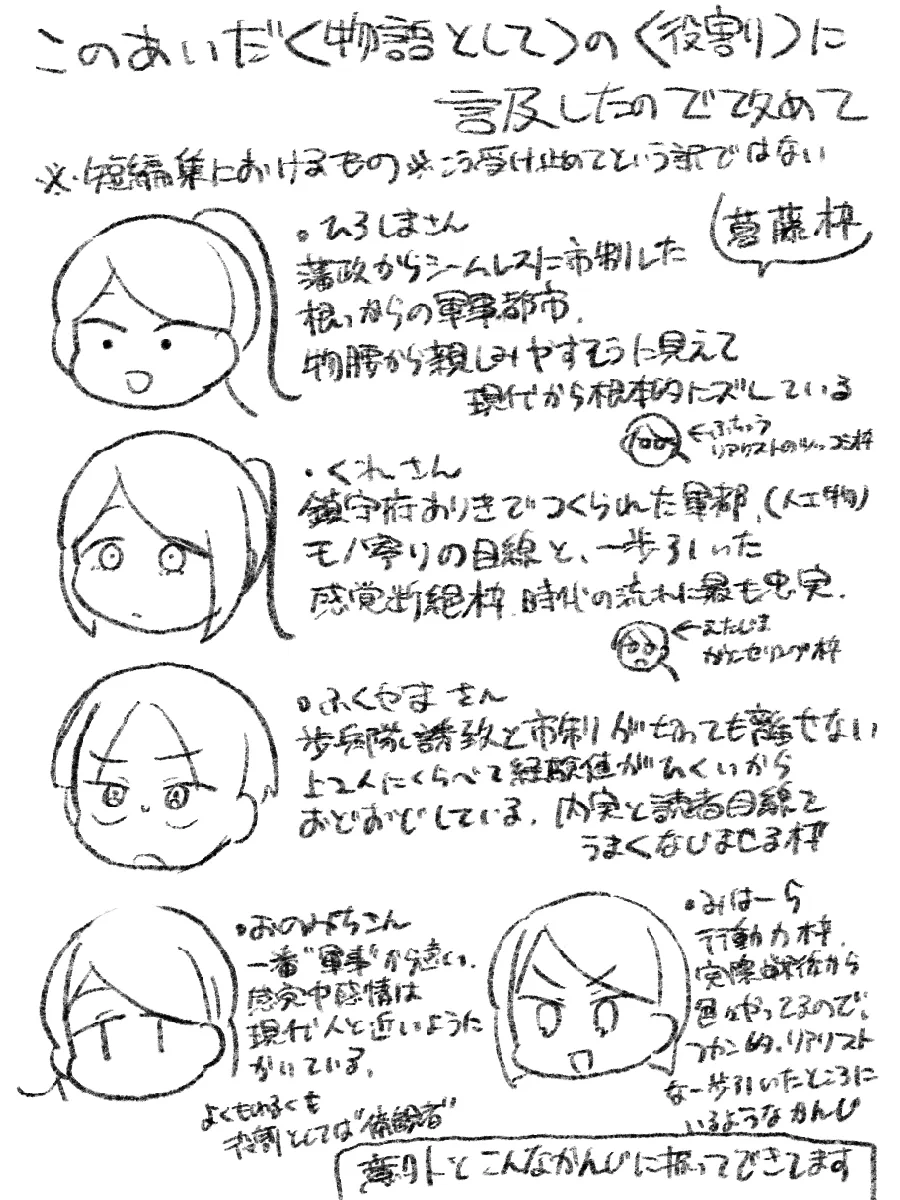 このあいだ〈物語として〉の〈役割〉に
言及したので改めて
※短編集におけるもの※こう受け止めてという訳ではない
•ひろしまさん
葛藤枠
藩政からシームレスに市制した
根っからの軍事都市.
物腰から親しみやすそうに見えて
現代から根本的にズレている
←ふちゅう
リアリストのツッコミ枠
・くれさん
鎮守府ありきでつくられた軍都.(人工物)
モノ寄りの目線と、一歩引いた
感覚断絶枠.時代の流れに最も忠実.
←えたじま
カウンセリング枠
•ふくやまさん
歩兵隊誘致と市制が切っても離せない
上2人にくらべて経験値がひくいから
おどおどしている.内実と読者目線を
うまくなじませる枠
•おのみちさん
一番"軍事"から遠い.
感情は
現代人と近いように
かいている.
よくもわるくも
役割としては"傍観者"
•みはーら
行動力枠.
実際戦後から
色々やってるので、
リアリスト
な一歩引いたところに
いるようなかんじ
意外とこんなかんじに振ってできてます